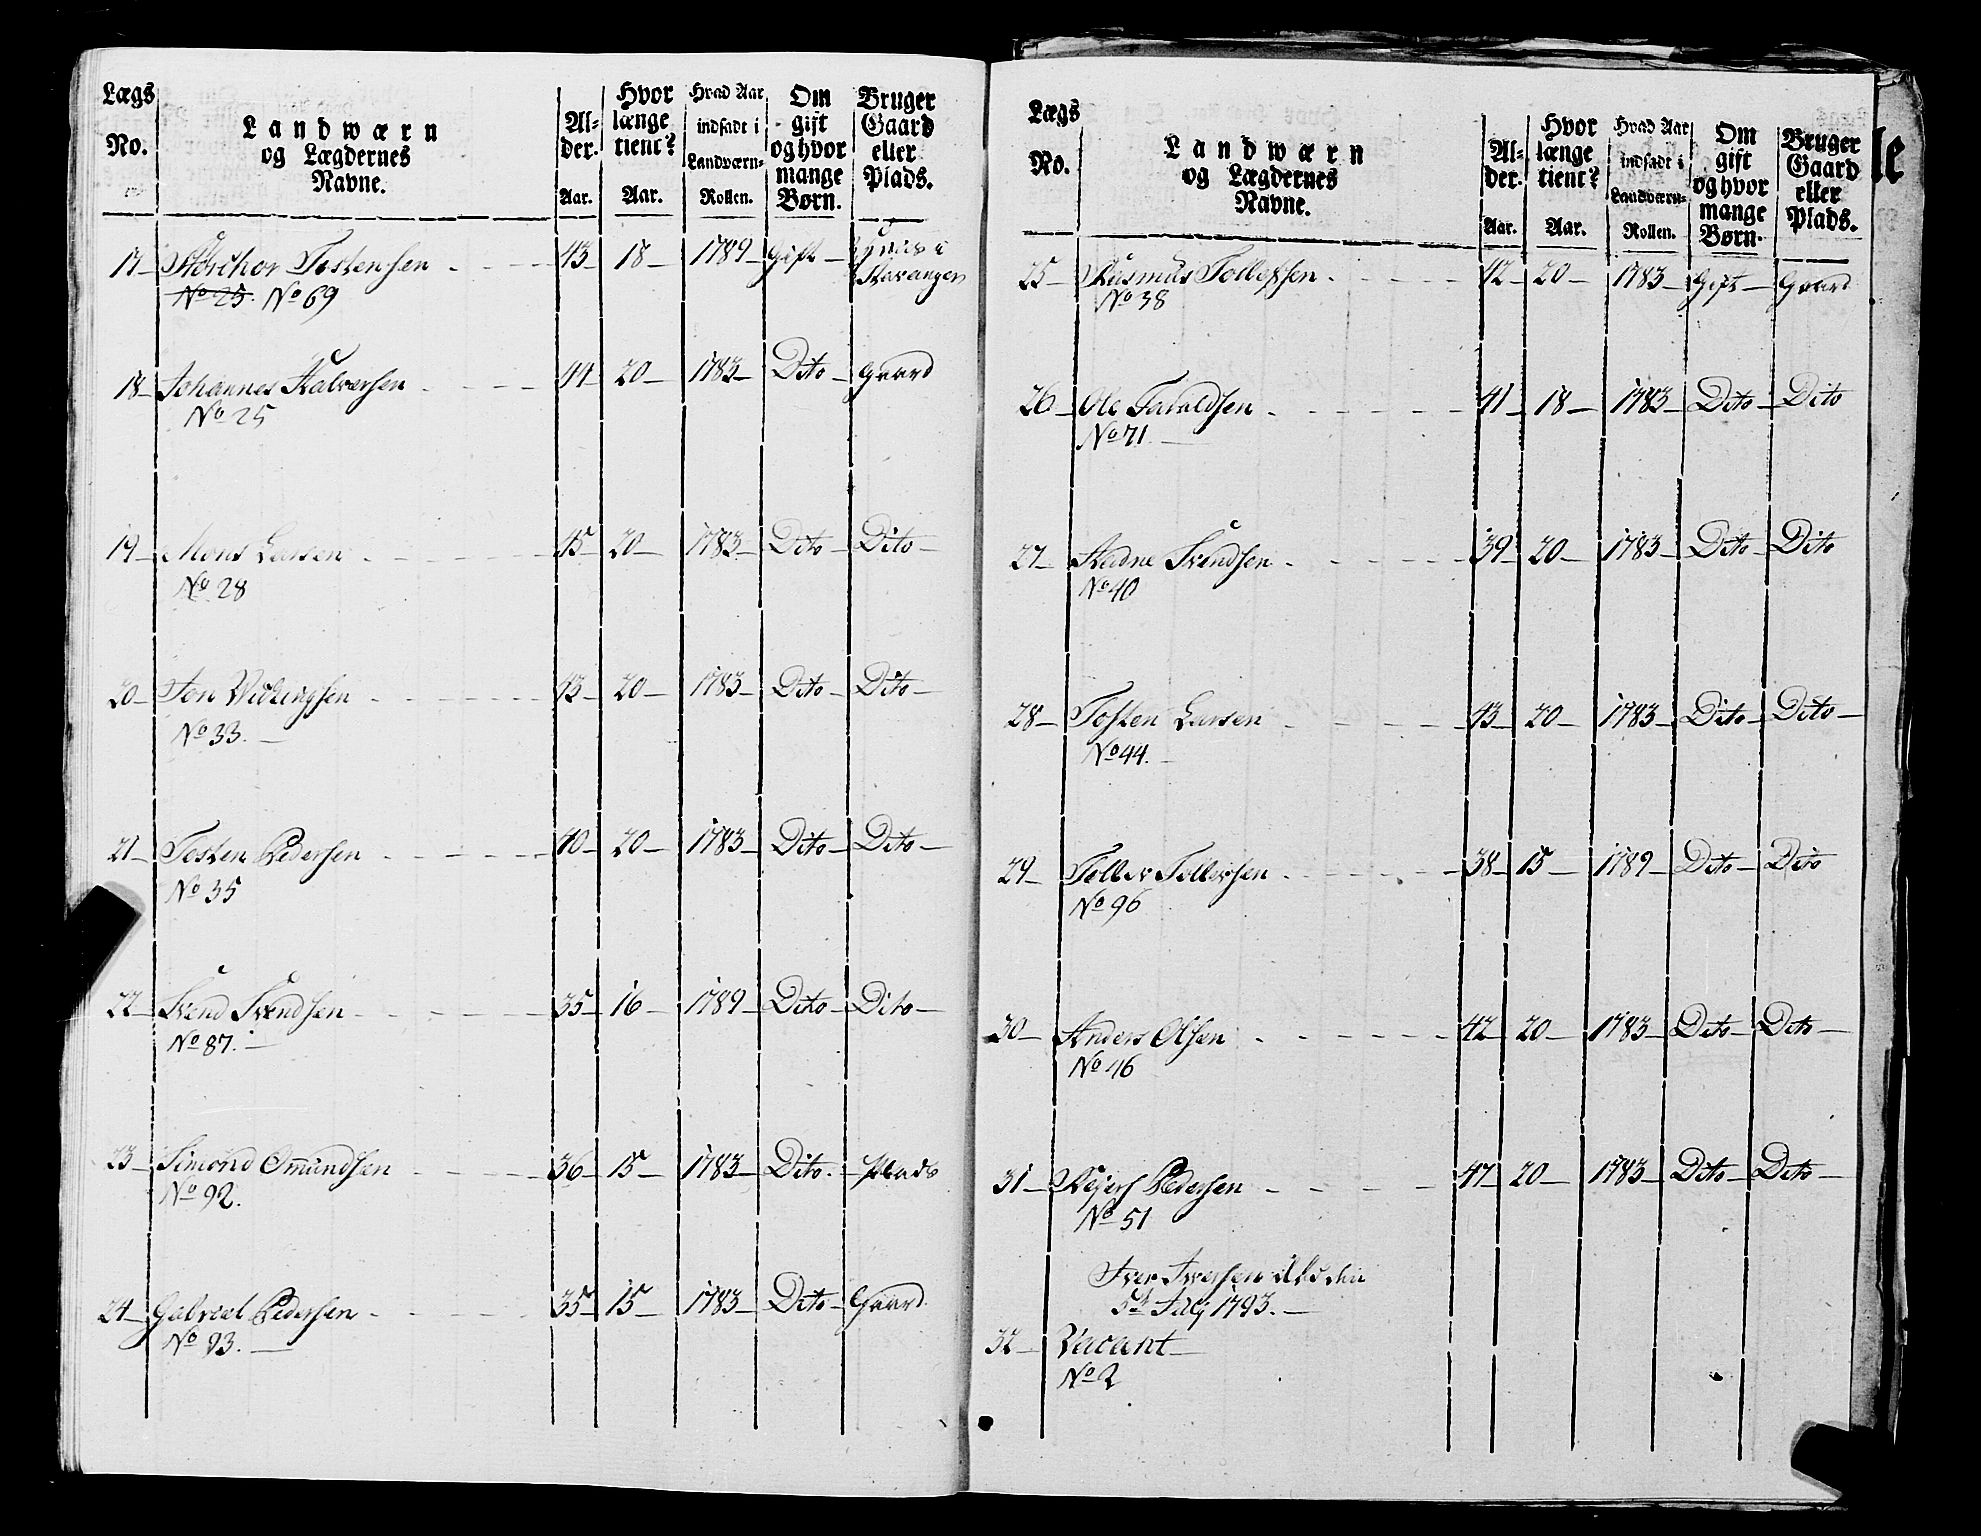 Lægs No. Landwærn og Lægdernes Navne. Al- der. Aar. Hvor længe tient? Aar. Hvad Aar indsadt i Landværn- Rollen. Om gift og hvor mange Børn. Bruger Gaard eller Plads.
17 Tostensen 43 18 1789 Gift i Stavanger
No 25. No 69
18 Johannes Halversen 44 20 1783 Dito Gaard
No 25
19 Mons Larsen 45 20 1783 Dito Dito
No 28
20 Jon Vickingsen 43 20 1783 Dito Dito
No 33.
21 Tosten Pedersen 40 20 1783 Dito Dito
No 35
22 Svend Svendsen 35 16 1789 Dito Dito
No 87.
23 Simond Omundsen 36 15 1783 Dito. Plads
No 92.
24 Gabriel Pedersen 35 15 1783 Dito Gaard
No 93.
Lægs No. Landwærn og Lægdernes Navne. Al- der. Aar. Hvor længe tient? Aar. Hvad Aar indsadt i Landværn- Rollen. Om gift og hvor mange Børn. Bruger Gaard eller Plads.
25 Rasmus Tollefsen 42 20 1783 Gift Gaard
No 38
26 Ole Taraldsen 41 18 1783 Dito Dito
No 71.
27 Svendsen 39 20 1783 Dito Dito
No 40
28 Tosten Larsen 43 20 1783 Dito Dito
No 44.
29 Tollev Tollevsen 38 15 1789 Dito Dito
No 96
30 Anders Olsen 42 20 1783 Dito Dito
No 46
31 Rejers Pedersen 47 20 1783 Dito Dito
No 51
Iver Iversen den
5te July 1793.
32 Vacant
No 2
le